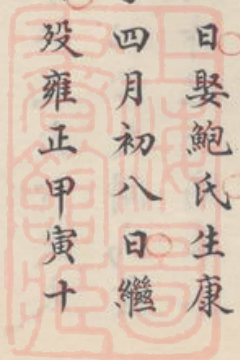 日娶鮑氏生康
四月初八日繼
殁雍正甲寅十